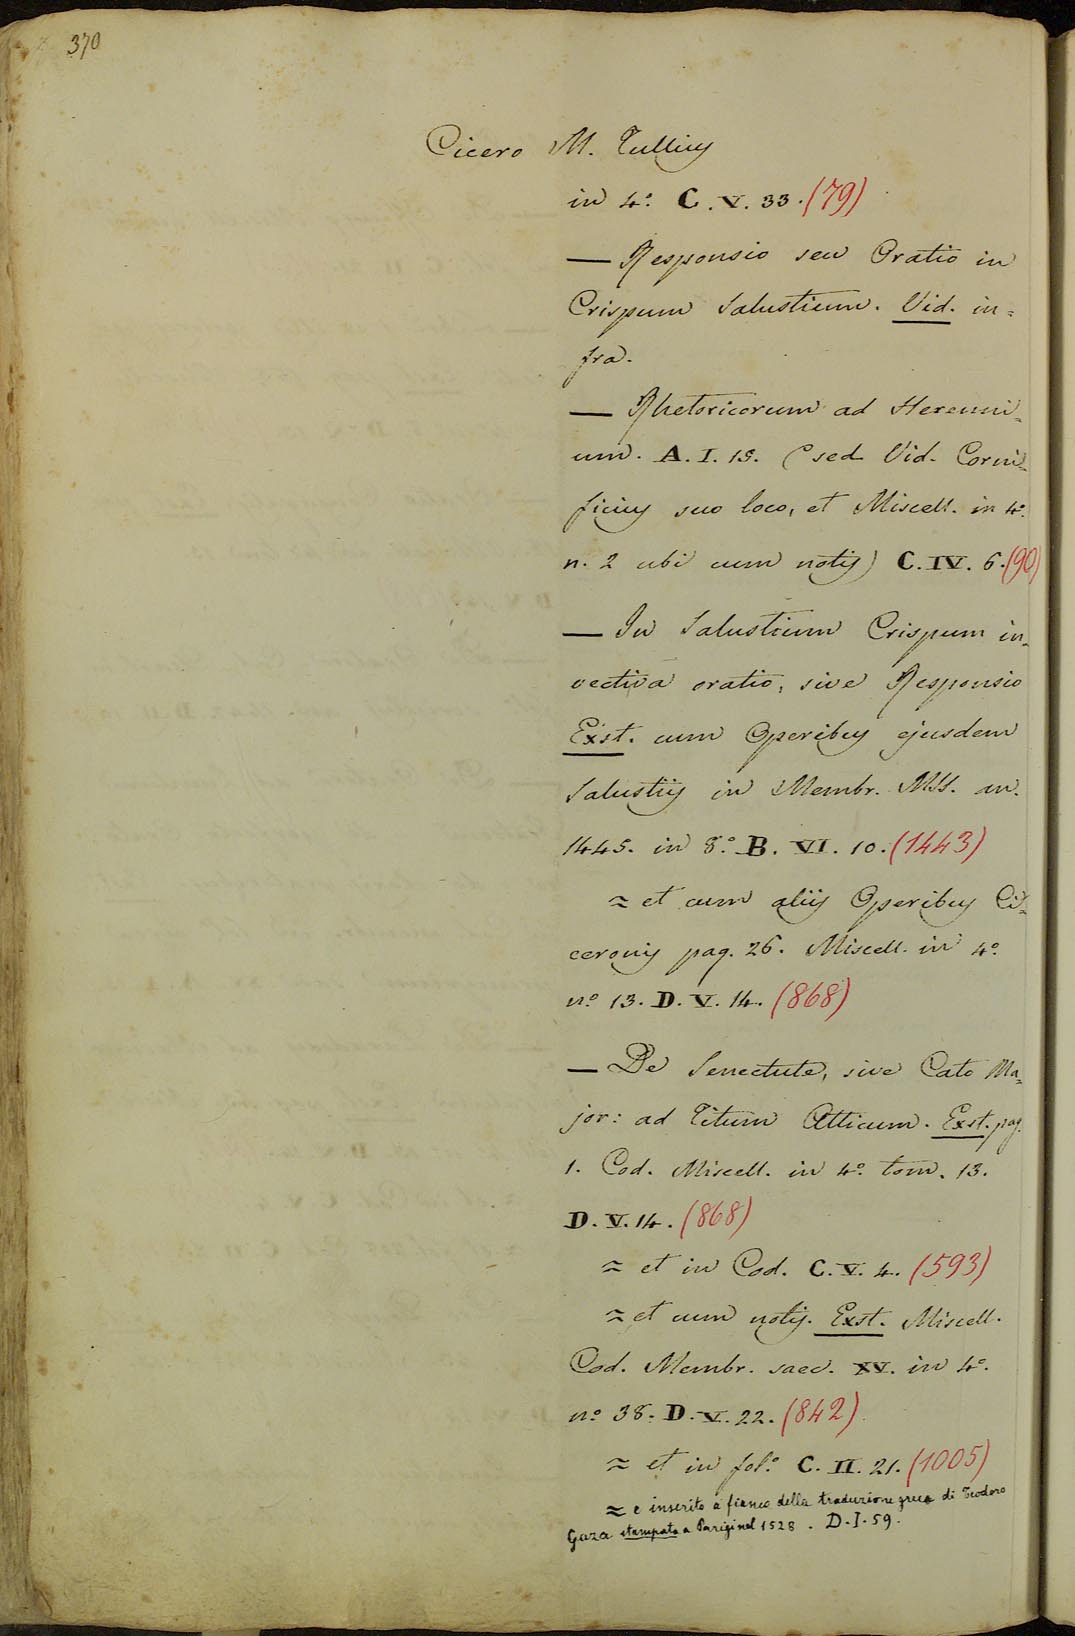 370
Cicero M. Tullius
in 4.º C. V. 33. (79)
— Responsio seu Oratio in
Crispum Salustium. Vid. in=
fra.
— Rhetoricorum ad Herenni=
um. A. I. 15. (sed Vid. Corni=
ficius suo loco, et Miscell. in 4.º
n. 2 ubi cum notis) C. IV. 6. (90)
— In Salustium Crispum in=
vectiva oratio, sive Responsio
Exst. cum Operibus ejusdem
Salustii in Membr. MSS. an.
1445. in 8.º B. VI. 10. (1443)
≈ et cum aliis Operibus Ci=
ceronis pag. 26. Miscell. in 4.º
nº 13. D. V. 14. (868)
— De Senectute, sive Cato Ma=
jor: ad Titum Atticum. Exst. pag.
1. Cod. Miscell. in 4.º tom. 13.
D. V. 14. (868)
≈ et in Cod. C. V. 4. (593)
≈ et cum notis. Exst. Miscell.
Cod. Membr. saec. XV. in 4.º
nº 38. D. V. 22. (842)
≈ et in fol.º C. II. 21. (1005)
≈ e inserito a fianco della traduzione greca di Teodoro
Gaza stampata a Parigi nel 1528. D. I. 59.